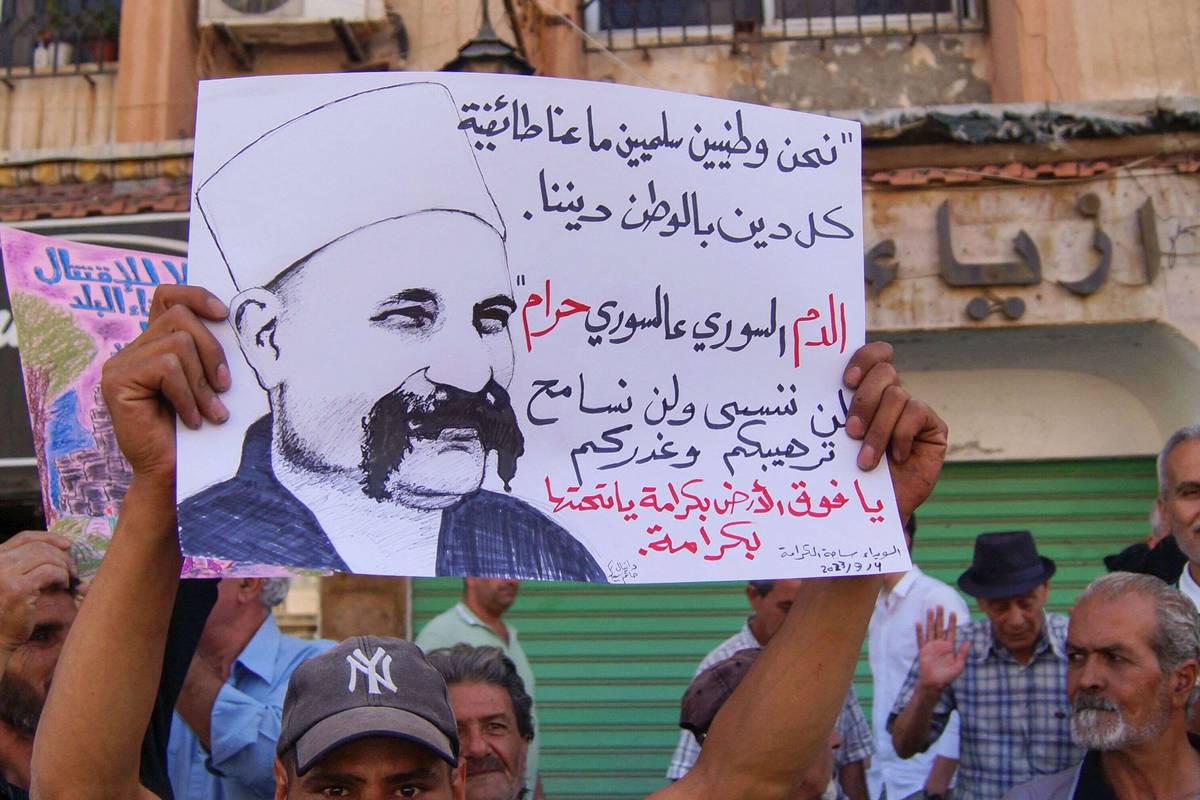 "نحن وطنيين سلميين ما عنا طائفية
كل دين بالوطن ديننا.
الدم السوري عالسوري حرام"
لن ننسى ولن نسامح
ترهيبكم وغدركم
يا فوق الأرض بكرامة يا تحتها
بكرامة.
السويداء ساحة الكرامة
2023/9/4
لا للاقتتال
البلد
ازياء
NY